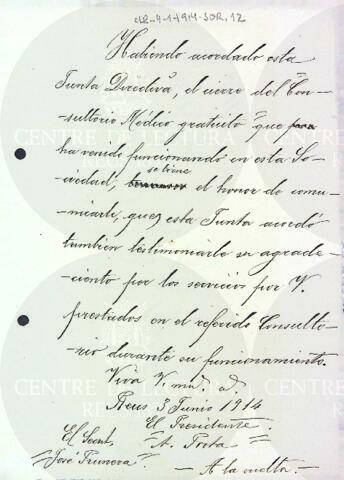 CLR-4-1-1914-SOR, 12
Habiendo acordado esta
Junta Directiva, el cierre del Con-
sultorio Médico gratuito que para
ha venido funcionando en esta So-
se tiene
ciedad, el honor de comu-
nicarle, que esta Junta acordó
tambien testimoniarle su agrade-
-ciento por los servicios por V.
prestados en el referido Consulto-
-rio durante su funcionamiento.
Viva V. m.s a.s
Reus 3 Junio 1914
El Presidente
El Secret. A. Porta
José Prunera
- A la vuelta. -
CENTRE DE LECTURA
CENTRE DE LECTURA